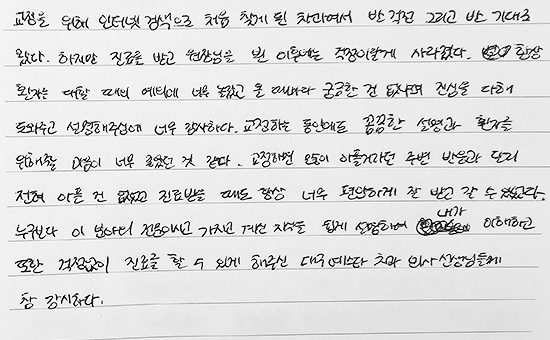 교정을 위해 인터넷 검색으로 처음 찾게 된 치과에서 반 걱정 그리고 반 기대로
왔다. 하지만 진료를 받고 원장님을 뵌 이후에는 걱정이랄게 사라졌다. 항상
환자를 대할 때의 에티에 너무 놀랐고 올 때마다 궁금한 건 없냐며 진심을 다해
도와주고 설명해주심에 너무 감사하다. 교정하는 동안에도 꼼꼼한 설명과 환자를
위해줄 마음이 너무 좋았던 것 같다. 교정하면 아플거라던 주변 반응과 달리
전혀 아픈 건 없었고 진료받을 때도 항상 너무 편안하게 잘 받고 갈 수 있었다.
누구보다 이 분야의 전문이시고 가지고 계신 지식을 쉽게 설명하여 내가 이해하고
또한 걱정없이 진료를 할 수 있게 해주신 대구 예스타 치과 의사 선생님들께
참 감사하다.